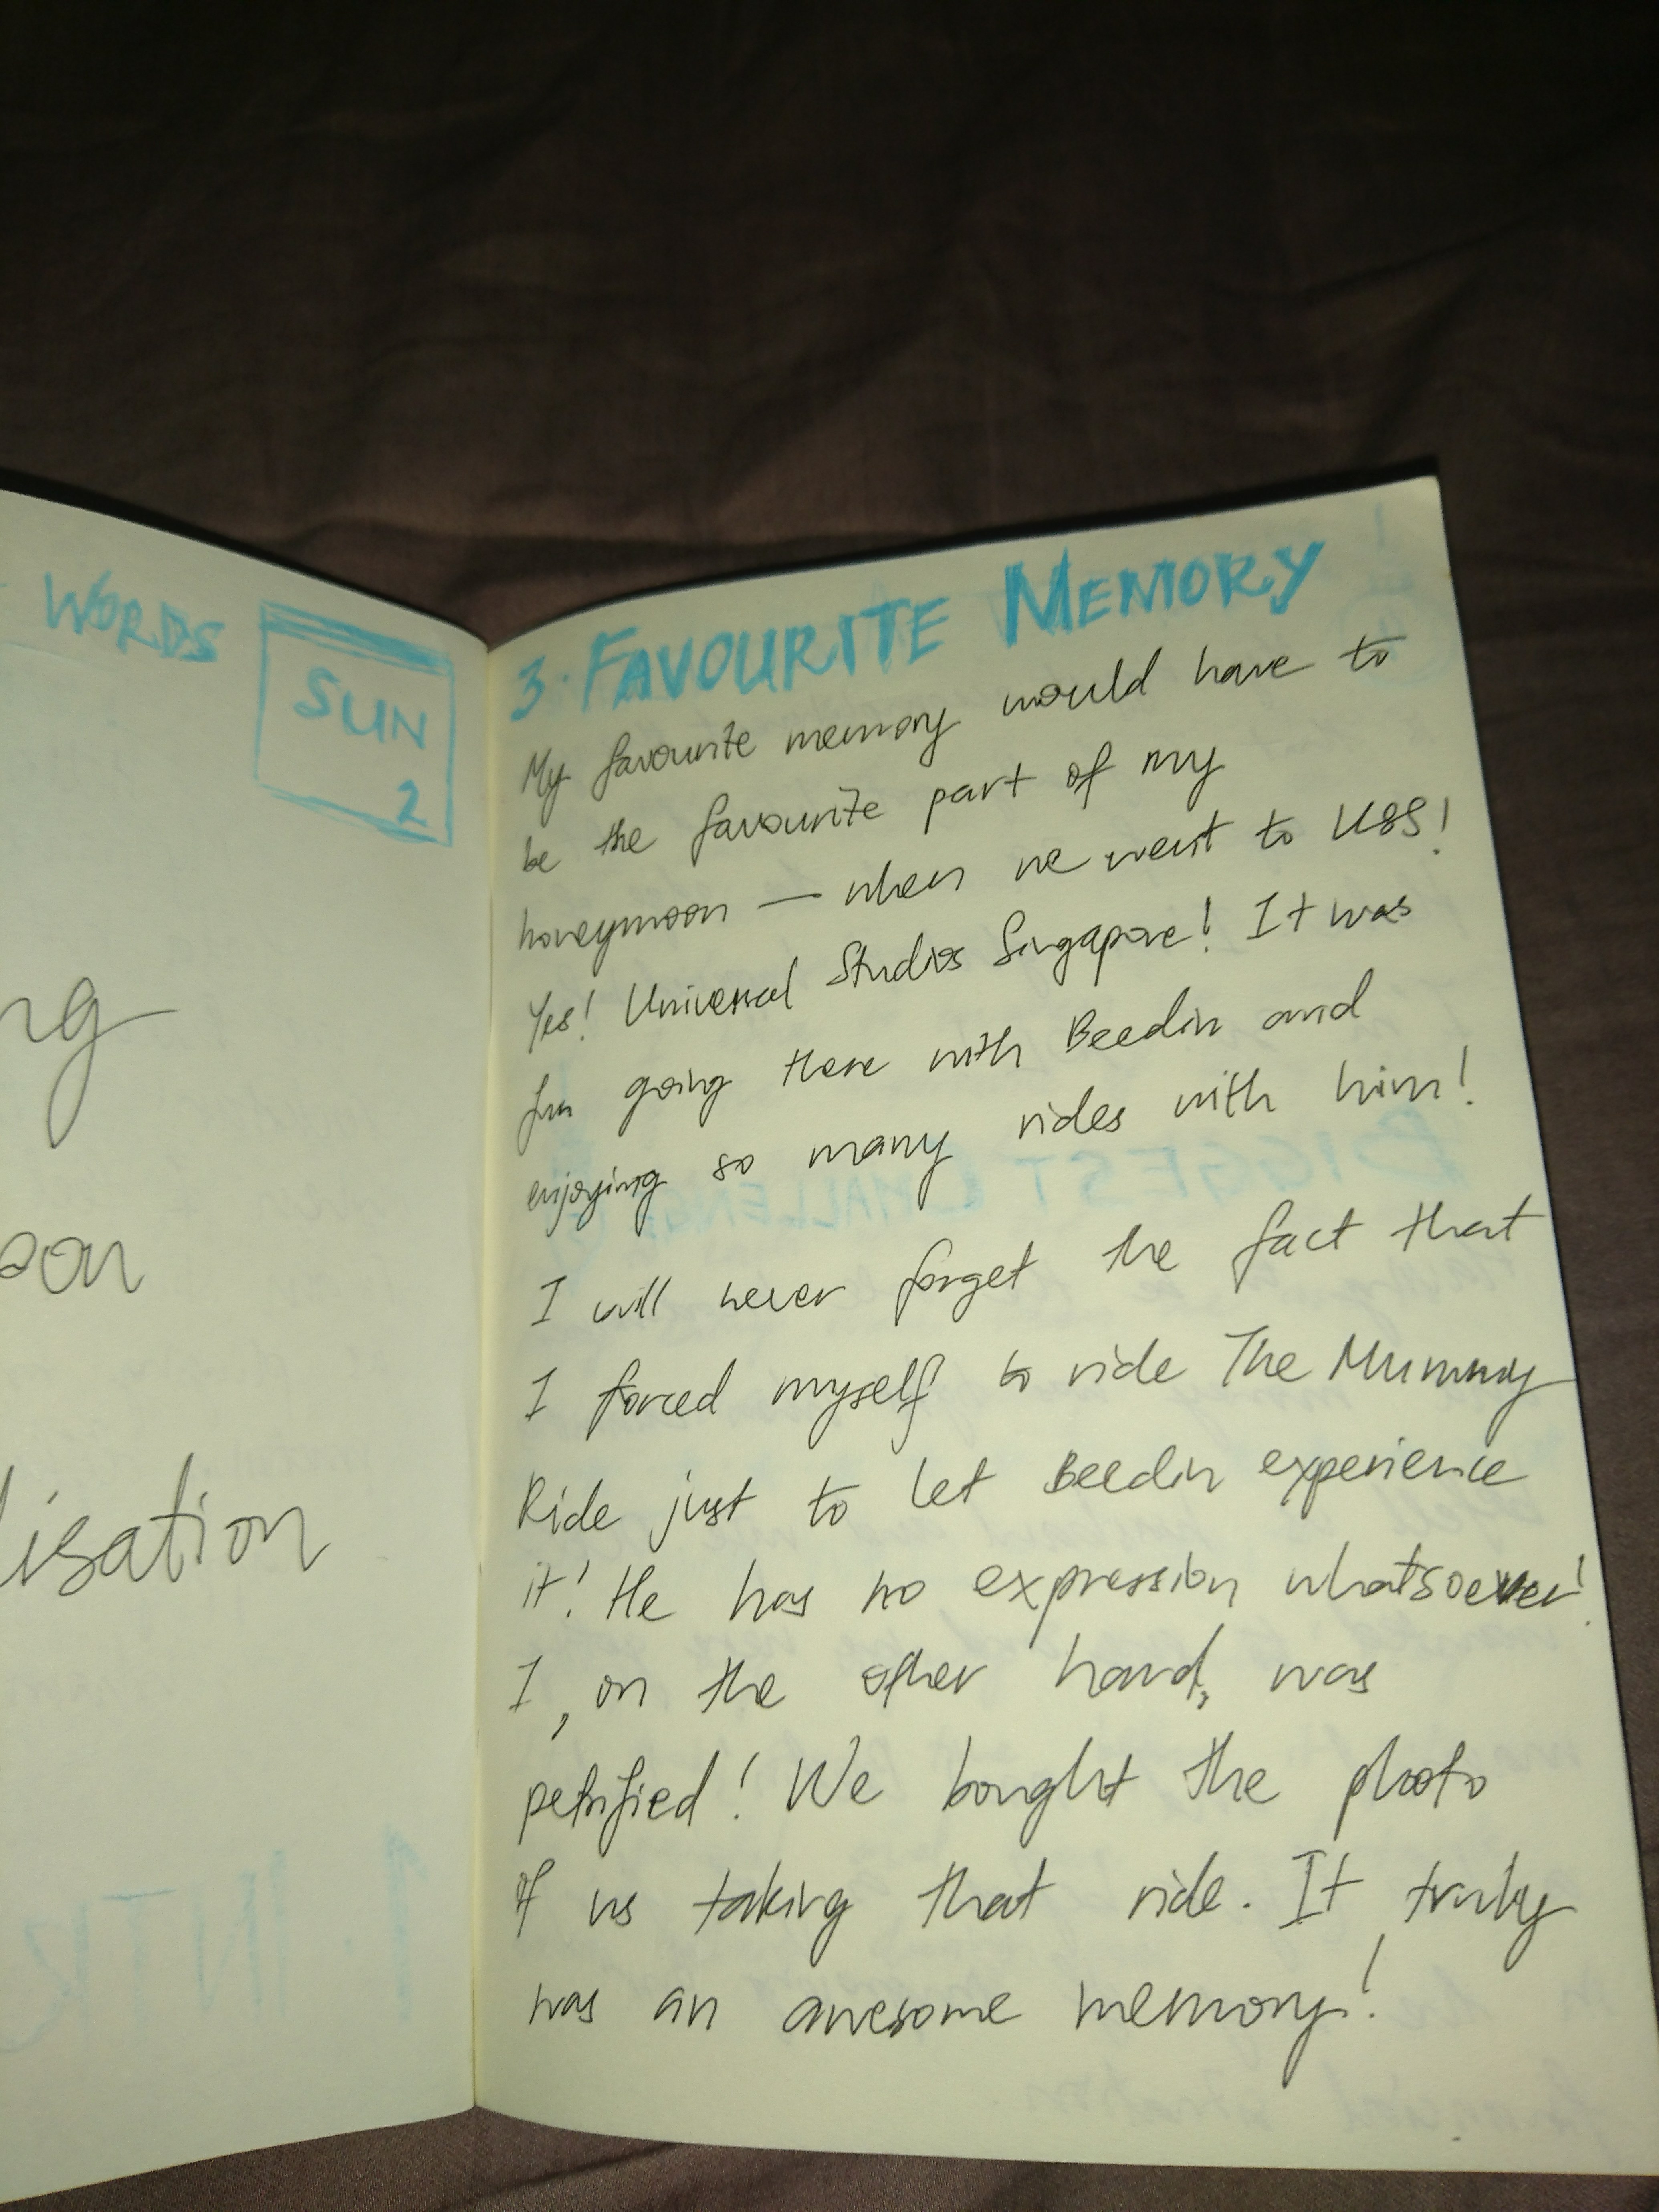 WORDS
SUN
2
ng
oon
lisation
3. FAVOURITE MEMORY
My favourite memory would have to
be the favourite part of my
honeymoon — when we went to USS!
Yes! Universal Studios Singapore! It was
fun going there with Beedin and
enjoying so many rides with him!
I will never forget the fact that
I forced myself to ride The Mummy
Ride just to let Beedin experience
it! He has no expression whatsoever!
I, on the other hand, was
petrified! We bought the photo
of us taking that ride. It truly
was an awesome memory!
BIGGEST CHALLENGE
1. INTR